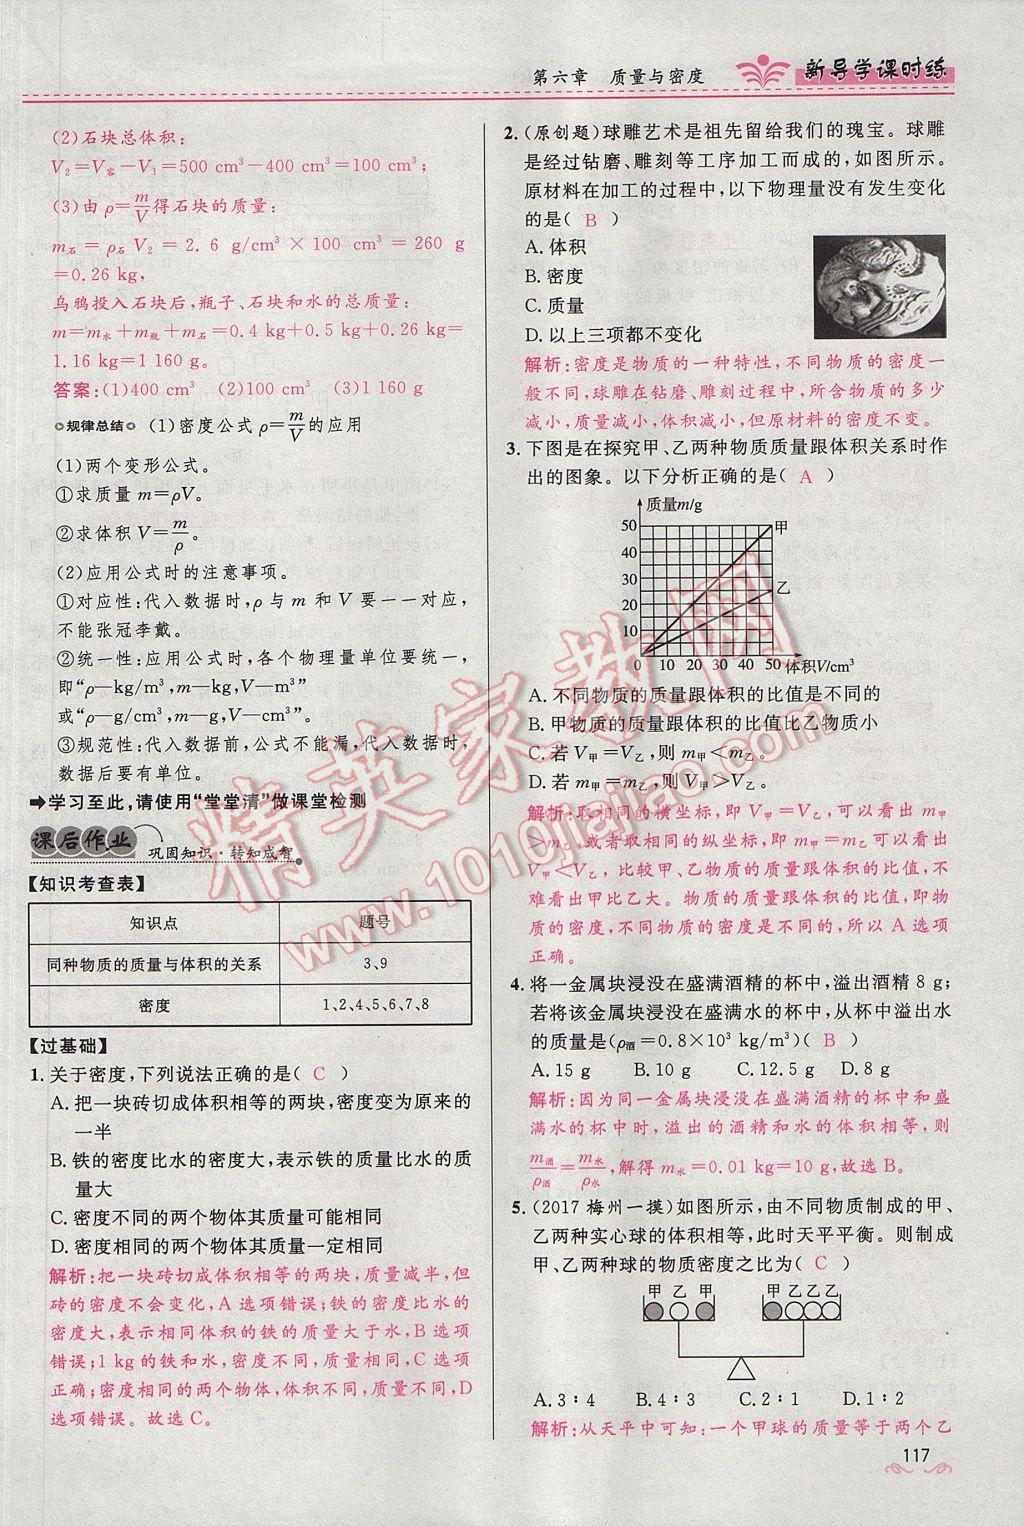 第六章 质量与密度
新导学课时练
(2)石块总体积:
V₂=V容-V₁=500 cm³-400 cm³=100 cm³;
(3)由 ρ=m/V得石块的质量:
m石=ρ石 V₂=2.6 g/cm³×100 cm³=260 g
=0.26 kg,
乌鸦投入石块后,瓶子、石块和水的总质量:
m=m水+m瓶+m石=0.4 kg+0.5 kg+0.26 kg=
1.16 kg=1 160 g。
答案:(1)400 cm³ (2)100 cm³ (3)1 160 g
规律总结 (1)密度公式 ρ=m/V的应用
(1)两个变形公式。
①求质量 m=ρV。
②求体积 V=m/ρ。
(2)应用公式时的注意事项。
①对应性:代入数据时,ρ 与 m 和 V 要一一对应,
不能张冠李戴。
②统一性:应用公式时,各个物理量单位要统一,
即“ρ—kg/m³,m—kg,V—m³”
或“ρ—g/cm³,m—g,V—cm³”。
③规范性:代入数据前,公式不能漏,代入数据时,
数据后要有单位。
➡学习至此,请使用“堂堂清”做课堂检测
课后作业 巩固知识·转知成智
【知识考查表】
知识点 题号
同种物质的质量与体积的关系 3、9
密度 1、2、4、5、6、7、8
【过基础】
1. 关于密度,下列说法正确的是( C )
A. 把一块砖切成体积相等的两块,密度变为原来的
一半
B. 铁的密度比水的密度大,表示铁的质量比水的质
量大
C. 密度不同的两个物体其质量可能相同
D. 密度相同的两个物体其质量一定相同
解析:把一块砖切成体积相等的两块,质量减半,但
砖的密度不会变化,A 选项错误;铁的密度比水的
密度大,表示相同体积的铁的质量大于水,B 选项
错误;1 kg的铁和水,密度不同,质量相同,C 选项
正确;密度相同的两个物体,体积不同,质量不同,D
选项错误。故选 C。
2. (原创题)球雕艺术是祖先留给我们的瑰宝。球雕
是经过钻磨、雕刻等工序加工而成的,如图所示。
原材料在加工的过程中,以下物理量没有发生变化
的是( B )
A. 体积
B. 密度
C. 质量
D. 以上三项都不变化
解析:密度是物质的一种特性,不同物质的密度一
般不同,球雕在钻磨、雕刻过程中,所含物质的多少
减小,质量减小,体积减小,但原材料的密度不变。
3. 下图是在探究甲、乙两种物质质量跟体积关系时作
出的图象。以下分析正确的是( A )
质量m/g
50 甲
40
30
乙
20
10
0 10 20 30 40 50 体积V/cm³
A. 不同物质的质量跟体积的比值是不同的
B. 甲物质的质量跟体积的比值比乙物质小
C. 若 V甲=V乙,则 m甲<m乙。
D. 若 m甲=m乙,则 V甲>V乙。
解析:取相同的横坐标,即 V甲=V乙,可以看出 m甲
>m乙,或者取相同的纵坐标,即 m甲=m乙可以看出
V甲<V乙,比较甲、乙物质的质量跟体积的比值,
不难看出甲比乙大。物质的质量跟体积的比值,即物
质的密度,不同物质的密度是不同的,所以 A 选项
正确。
4. 将一金属块浸没在盛满酒精的杯中,溢出酒精 8 g;
若将该金属块浸没在盛满水的杯中,从杯中溢出水
的质量是(ρ酒=0.8×10³ kg/m³)( B )
A. 15 g B. 10 g C. 12.5 g D. 8 g
解析:因为同一金属块浸没在盛满酒精的杯中和盛
满水的杯中时,溢出的酒精和水的体积相等,则
m酒/ρ酒=m水/ρ水,解得 m水=0.01 kg=10 g,故选 B。
5. (2017 梅州一摸)如图所示,由不同物质制成的甲、
乙两种实心球的体积相等,此时天平平衡。则制成
甲、乙两种球的物质密度之比为( C )
甲 乙 甲 甲 乙乙乙
A. 3∶4 B. 4∶3 C. 2∶1 D. 1∶2
解析:从天平中可知:一个甲球的质量等于两个乙
117
精英家教网
www.1010jiajiao.com